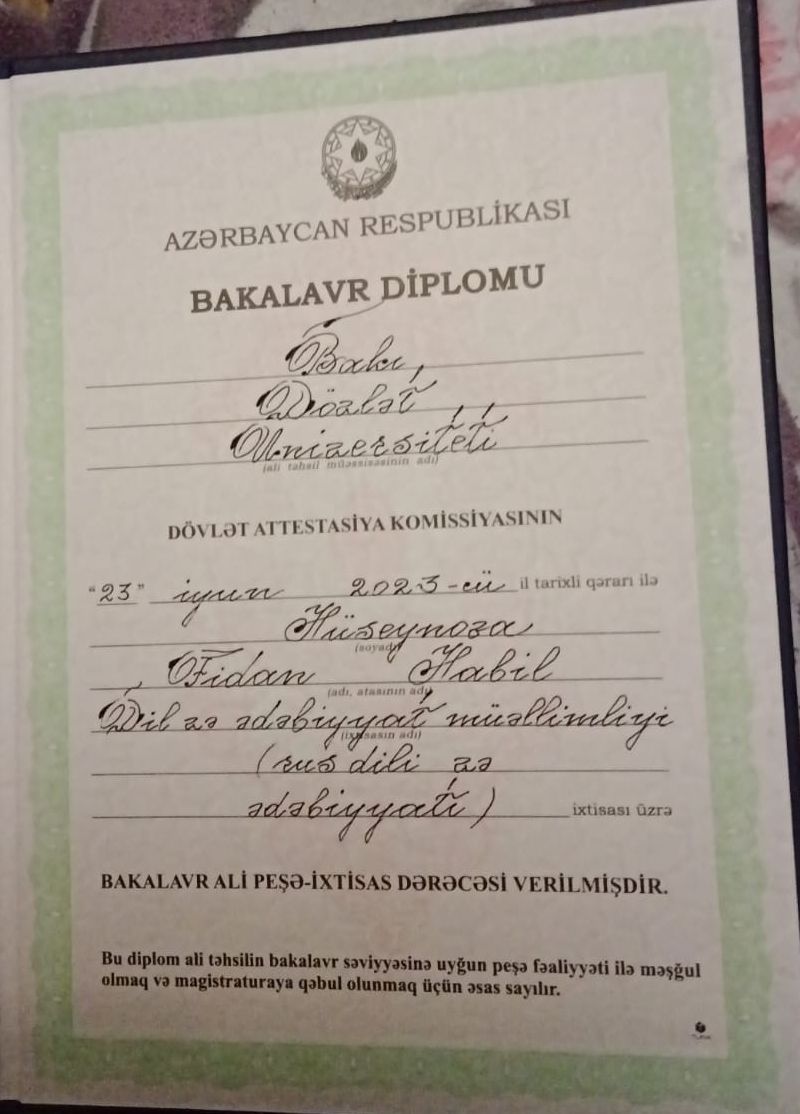 AZƏRBAYCAN RESPUBLİKASI
BAKALAVR DİPLOMU
Bakı
Dövlət
Universiteti
(ali təhsil müəssisəsinin adı)
DÖVLƏT ATTESTASİYA KOMİSSİYASININ
"23" iyun 2023-cü il tarixli qərarı ilə
Hüseynova
(soyadı)
Fidan Habil
(adı, atasının adı)
Dil və ədəbiyyat müəllimliyi
(ixtisasın adı)
(rus dili və
ədəbiyyatı) ixtisası üzrə
BAKALAVR ALİ PEŞƏ-İXTİSAS DƏRƏCƏSİ VERİLMİŞDİR.
Bu diplom ali təhsilin bakalavr səviyyəsinə uyğun peşə fəaliyyəti ilə məşğul
olmaq və magistraturaya qəbul olunmaq üçün əsas sayılır.